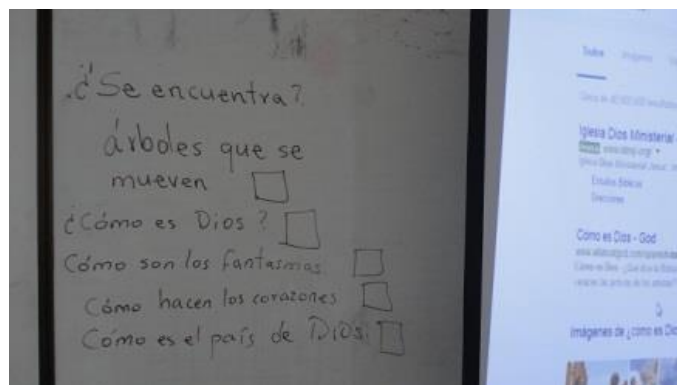 ¿Se encuentra?
árboles que se
mueven
¿Cómo es Dios?
Cómo son los fantasmas
Cómo hacen los corazones
Cómo es el país de Dios
Todos
Iglesia Dios Ministerial
Estudios Bíblicos
Direcciones
Como es Dios - God
Imágenes de ¿como es Dio